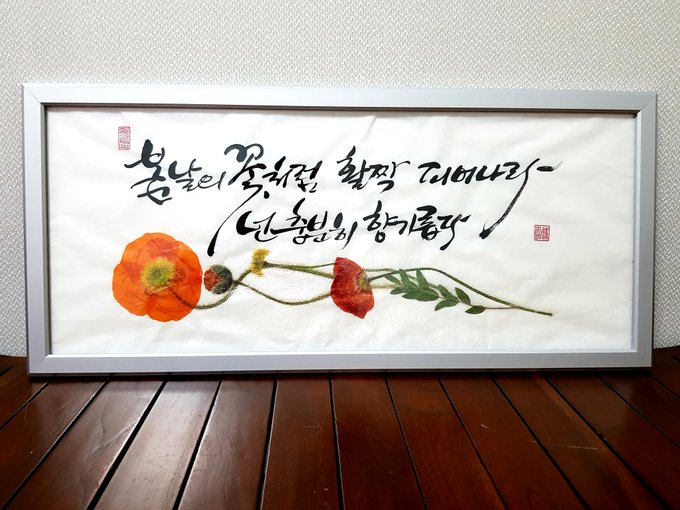 봄날의 꽃처럼 활짝 피어나라
넌 충분히 향기롭다